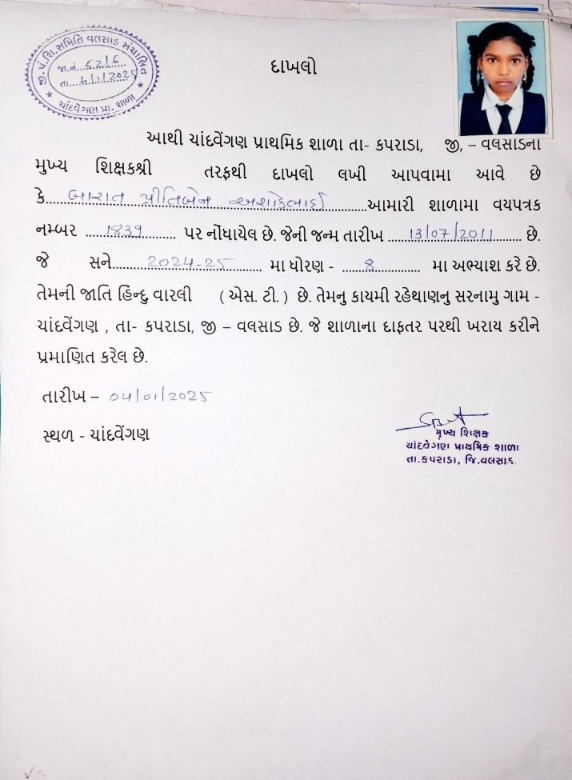 જી. પં. શિ. સમિતિ વલસાડ સંચાલિત
જા.નં. 52/6
તા. 4/1/2025
ચાંદવેંગણ પ્રા. શાળા
દાખલો
આથી ચાંદવેંગણ પ્રાથમિક શાળા તા- કપરાડા, જી, – વલસાડના
મુખ્ય શિક્ષકશ્રી તરફથી દાખલો લખી આપવામા આવે છે
કે, પ્રીતિબેન અશોકભાઈ આમારી શાળામા વયપત્રક
નમ્બર 1839 પર નોંધાયેલ છે. જેની જન્મ તારીખ 13/07/2011 છે.
જે સને 2024-25 મા ધોરણ - 8 મા અભ્યાશ કરે છે.
તેમની જાતિ હિન્દુ વારલી ( એસ. ટી. ) છે. તેમનુ કાયમી રહેથાણનુ સરનામુ ગામ -
ચાંદવેંગણ , તા- કપરાડા, જી – વલસાડ છે. જે શાળાના દાફતર પરથી ખરાય કરીને
પ્રમાણિત કરેલ છે.
તારીખ – 04/01/2025
સ્થળ - ચાંદવેંગણ
મુખ્ય શિક્ષક
ચાંદવેગણ પ્રાથમિક શાળા
તા.કપરાડા, જિ.વલસાડ.